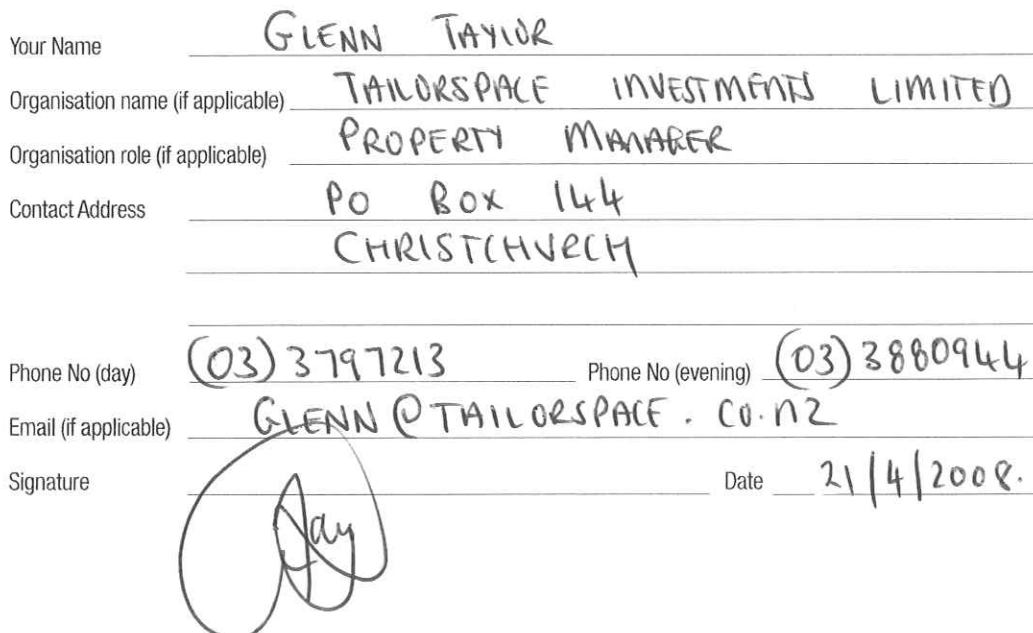 Your Name GLENN TAYLOR
Organisation name (if applicable) TAILORSPACE INVESTMENTS LIMITED
Organisation role (if applicable) PROPERTY MANAGER
Contact Address PO BOX 144
CHRISTCHURCH
Phone No (day) (03) 3797213 Phone No (evening) (03) 3880944
Email (if applicable) GLENN@TAILORSPACE.CO.NZ
Signature Date 21/4/2008.